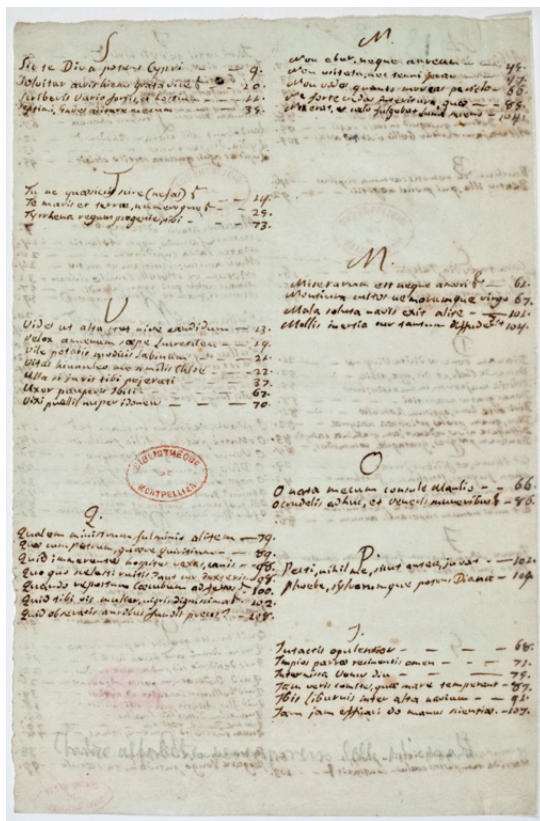 S
Sic te Diva potens Cypri — 9.
Solvitur acris hiems grata vice — 10.
Scriberis Vario fortis, et hostium — 11.
Septimi, Gades aditure mecum — 39.
T
Tu ne quaesieris scire (nefas) — 14.
Te maris et terrae, numeroque — 29.
Tyrrhena regum progenies, tibi — 73.
U
Vides ut alta stet nive candidum — 13.
Velox amoenum saepe Lucretilem — 19.
Vile potabis modicis Sabinum — 21.
Vitas hinnuleo me similis Chloe — 22.
Ulla si juris tibi pejerati — 37.
Uxor pauperis Ibici — 67.
Vixi puellis nuper idoneus — 70.
Q.
Qualem ministrum fulminis alitem — 79.
Quae cura patrum, quaeve quiritium — 89.
Quid immerentes hospites vexas, canis — 98.
Quo quo scelesti ruitis? aut cur dexteris — 98.
Quando repostum Caecubum ad festas — 100.
Quid tibi vis mulier, nigris dignissima — 102.
Quid obseratis auribus fundis preces? — 108.
N.
Non ebur, neque aureum — 48.
Non usitata, nec tenui ferar — 47.
Non vides quanto moveas periclo — 66.
Ne forte credas interitura, quae — 88.
Nox erat, et caelo fulgebat luna sereno — 104.
M.
Miserarum est neque amori — 62.
Montium custos nemorumque virgo — 67.
Mala soluta navis exit alite — 102.
Mollis inertia cur tantam diffuderit — 104.
O
O nata mecum consule Manlio — 66.
O crudelis adhuc, et veneris muneribus — 86.
P.
Petti, nihil me, sicut antea, juvat — 102.
Phoebe, sylvarumque potens Diana — 109.
I.
Intactis opulentior — 68.
Impios parrae recinentis omen — 71.
Intermissa Venus diu — 79.
Jam veris comites, quae mare temperant — 87.
Ibis Liburnis inter alta navium — 92.
Jam jam efficaci do manus scientiae — 107.
BIBLIOTHEQUE
DE
MONTPELLIER